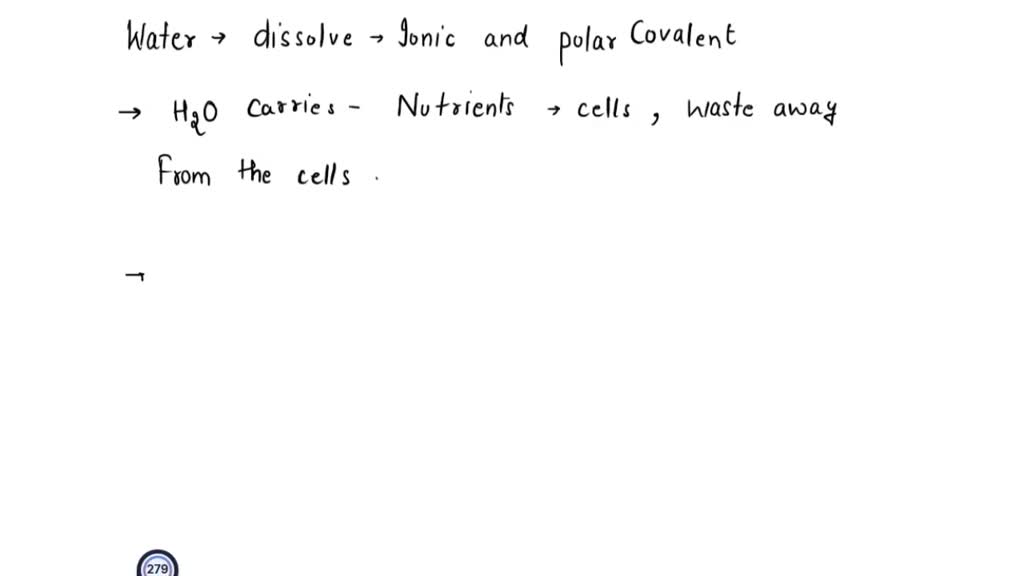 Water → dissolve → Ionic and polar Covalent
→ H2O Carries - Nutrients → cells, waste away
From the cells.
→
279